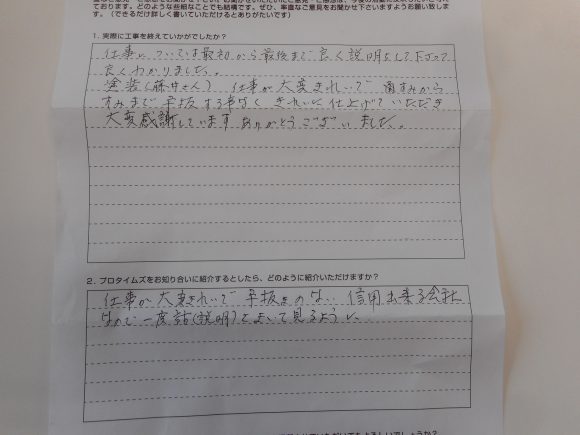 ております。どのような些細なことでも結構です。ぜひ、率直なご意見をお聞かせ下さいますようお願い致しま
す。（できるだけ詳しく書いていただけるとありがたいです）
1. 実際に工事を終えていかがでしたか？
仕事については最初から最後まで良く説明をして下さって
良くわかりました。
塗装（藤井さん） 仕事が大変きれいで すみから
すみまで手抜する事なく きれいに仕上げていただき
大変感謝しています ありがとうございました。
2. プロタイムズをお知り合いに紹介するとしたら、どのように紹介いただけますか？
仕事が大変きれいで 手抜きのない 信用出来る会社
なので一度話（説明）をきいて見るように